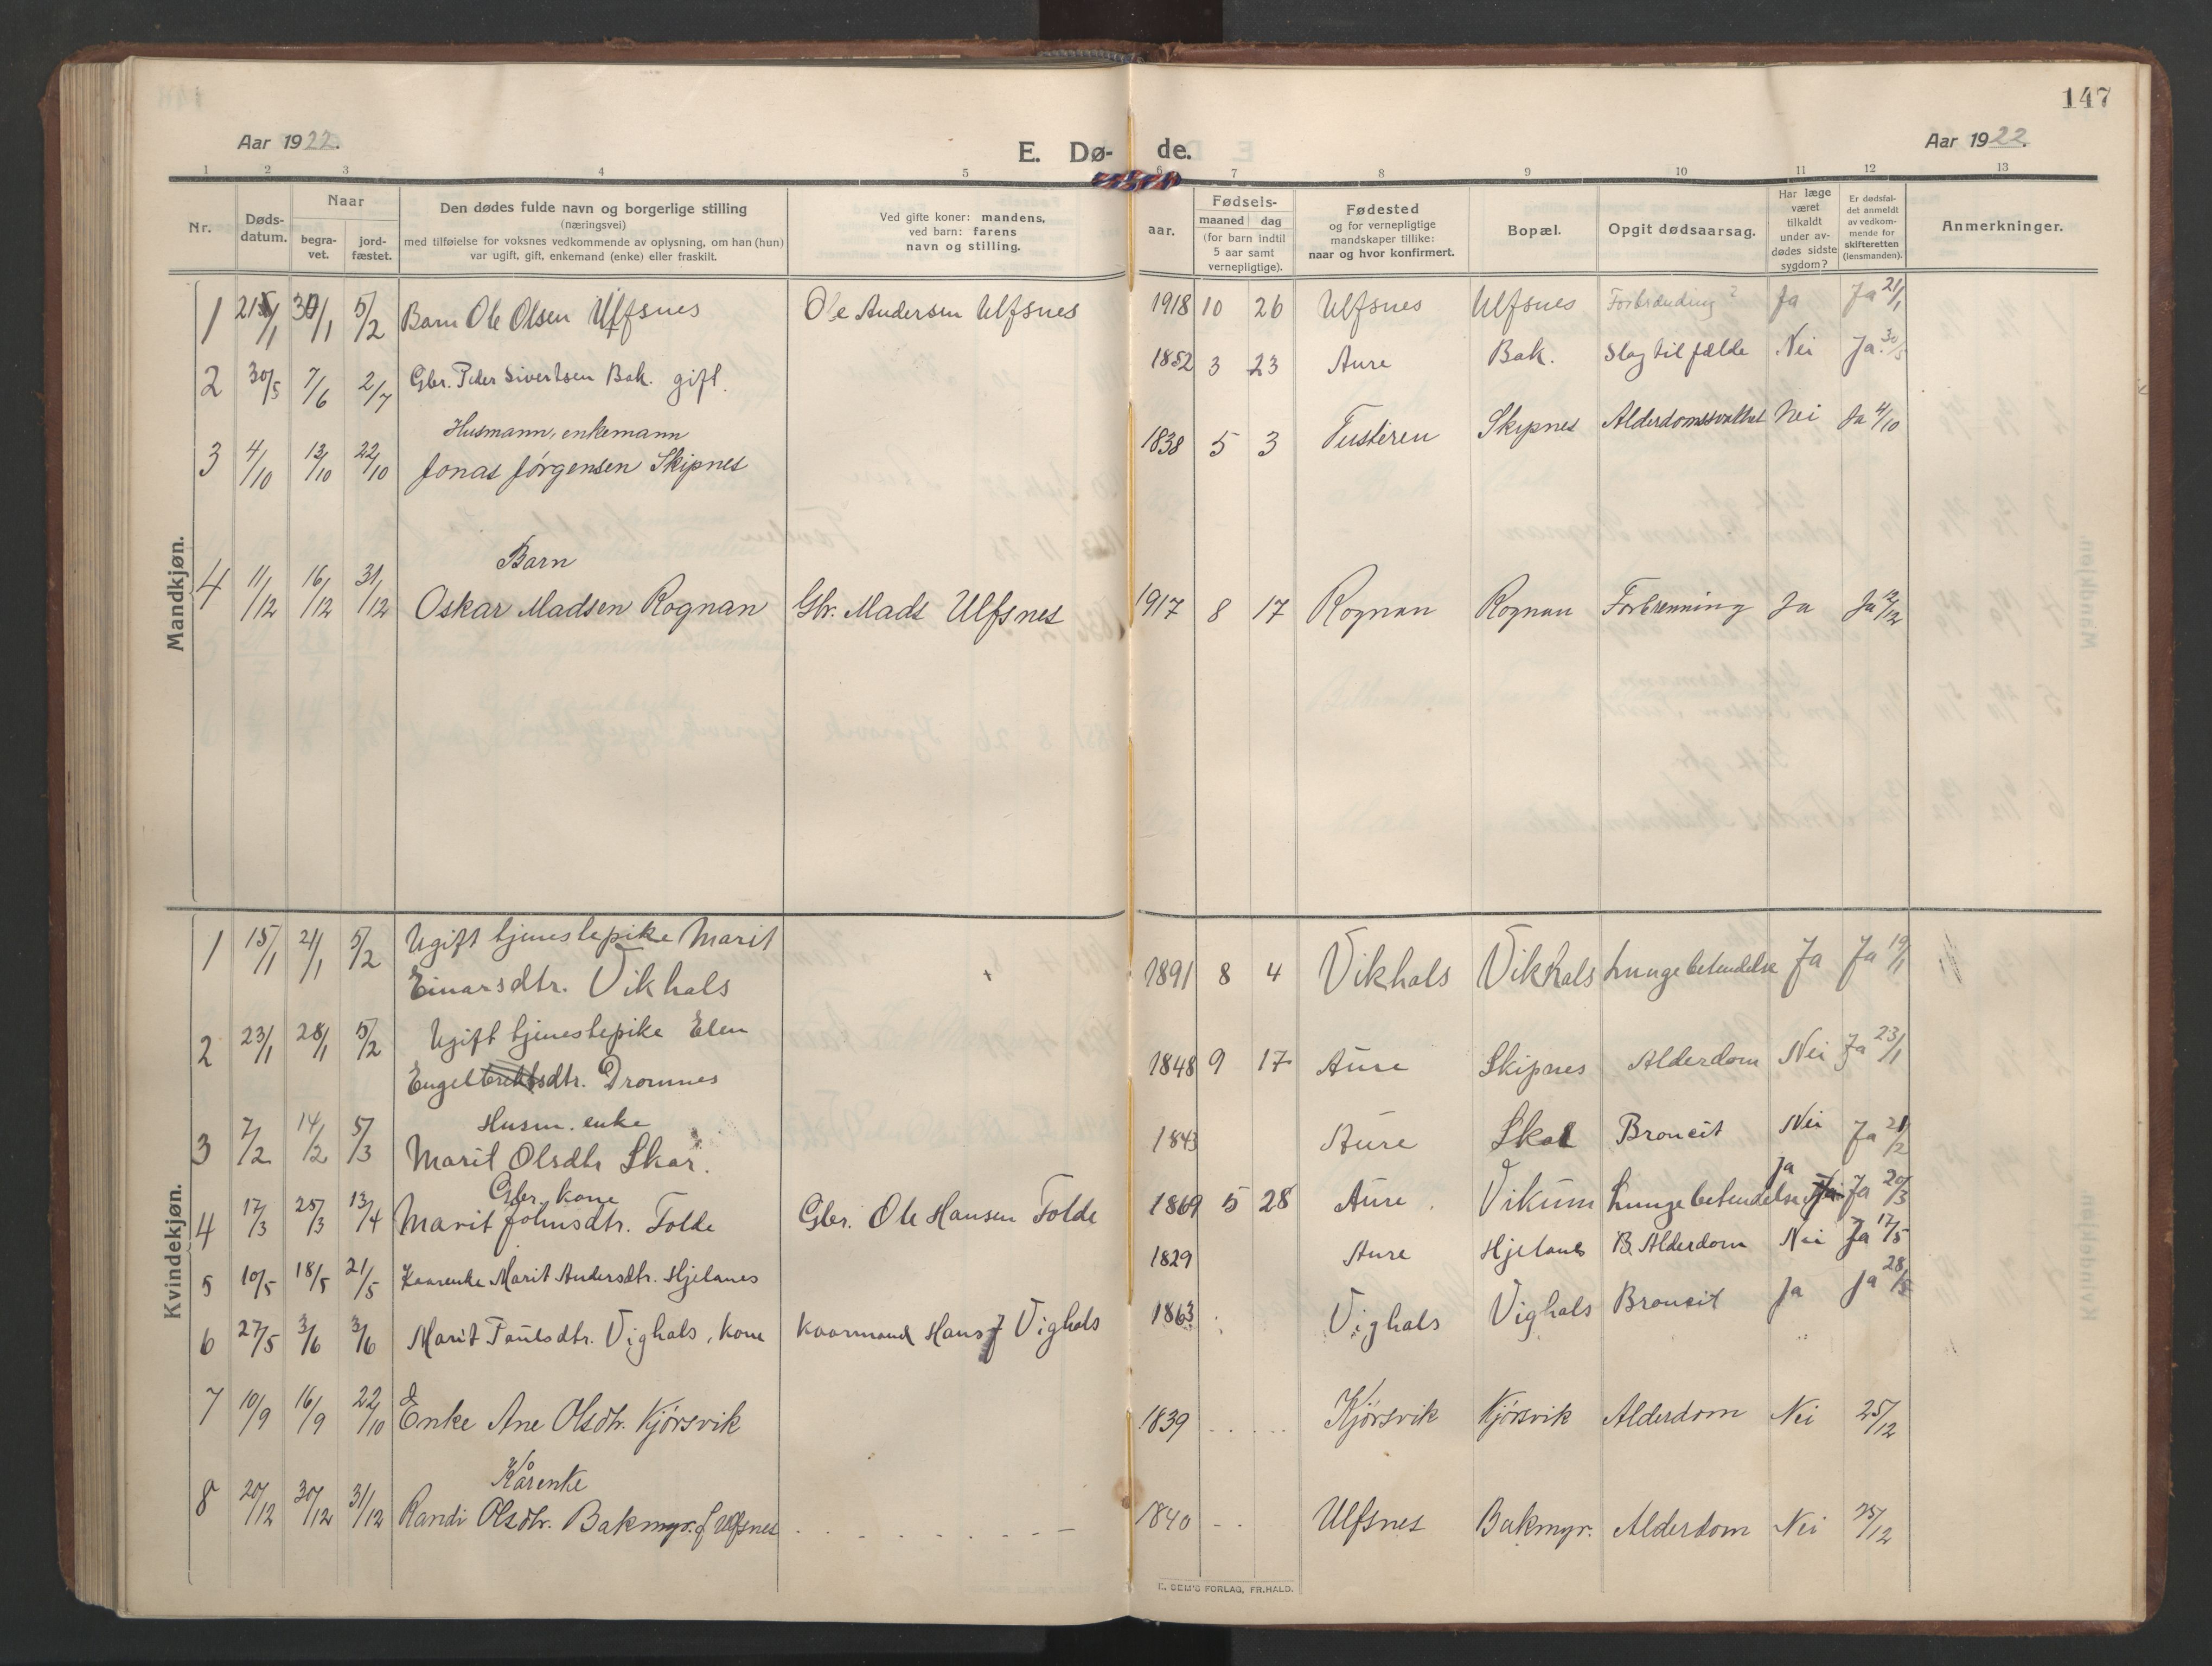 147
Aar 1922.
E. Dø- de.
Aar 1922.
1 2 3 4 5 6 7 8 9 10 11 12 13
Nr.
Døds-
datum.
Naar
begra-
vet.
jord-
fæstet.
Den dødes fulde navn og borgerlige stilling
(næringsvei)
med tilføielse for voksnes vedkommende av oplysning, om han (hun)
var ugift, gift, enkemand (enke) eller fraskilt.
Ved gifte koner: mandens,
ved barn: farens
navn og stilling.
Fødsels-
aar.
maaned dag
(for barn indtil
5 aar samt
vernepligtige).
Fødested
og for vernepligtige
mandskaper tillike:
naar og hvor konfirmert.
Bopæl.
Opgit dødsaarsag.
Har læge
været
tilkaldt
under av-
dødes sidste
sygdom?
Er dødsfal-
det anmeldt
av vedkom-
mende for
skifteretten
(lensmanden).
Anmerkninger.
Mandkjøn.
1 5/2 Barn Ole Olsen Ulfsnes Ole Andersen Ulfsnes 1918 10 26 Ulfsnes Ulfsnes Forbrænding? Ja Ja 21/1
2 30/5 7/6 2/7 Gbr. Peder Sivertsen Bak. gift. 1852 3 23 Aure Bak. Slagtilfælde Nei Ja 30/5
Husmann, enkemann
3 4/10 13/10 22/10 Jonas Jørgensen Skipnes 1838 5 3 Tusteren Skipnes Nei Ja 4/10
Barn
4 11/12 16/12 31/12 Oskar Madsen Rognan Gbr. Mads Ulfsnes 1917 8 17 Rognan Rognan Forbrenning Ja Ja 12/12
Kvindekjøn.
1 15/1 21/1 5/2 Ugift tjenestepike Marit
Einarsdtr. Vikhals 1891 8 4 Vikhals Vikhals Lungebetendelse Ja Ja 19/1
2 23/1 28/1 5/2 Ugift tjenestepike Elen
Engelbrektsdtr. Dromnes 1848 9 17 Aure Skipnes Alderdom Nei Ja 23/1
Husm. enke
3 7/2 14/2 5/3 Marit Olsdtr Skar. 1843 Aure Skar Broncit Nei Ja 21/2
Gbr. kone
4 17/3 25/3 13/4 Marit Johnsdtr. Tolde Gbr. Ole Hansen Tolde 1869 5 28 Aure. Vikum Lungebetendelse Ja Ja 20/3
5 10/5 18/5 21/5 Kaarenke Marit Andersdtr. Hjelanes 1829 Aure Hjelanes B. Alderdom Nei Ja 17/5
6 27/5 3/6 3/6 Marit Paulsdtr. Vighals, kone Kaarmand Hans J Vighals 1863 Vighals Vighals Broncit Ja Ja 28/5
7 10/9 16/9 22/10 Enke Ane Olsdtr. Kjørsvik 1839 Kjørsvik Kjørsvik Alderdom Nei 25/12
Kårenke
8 20/12 30/12 31/12 Randi Olsdtr. Bakmyr. f Ulfsnes 1840 Ulfsnes Bakmyr. Alderdom Nei 25/12
E. SEM'S FORLAG, FR.HALD.